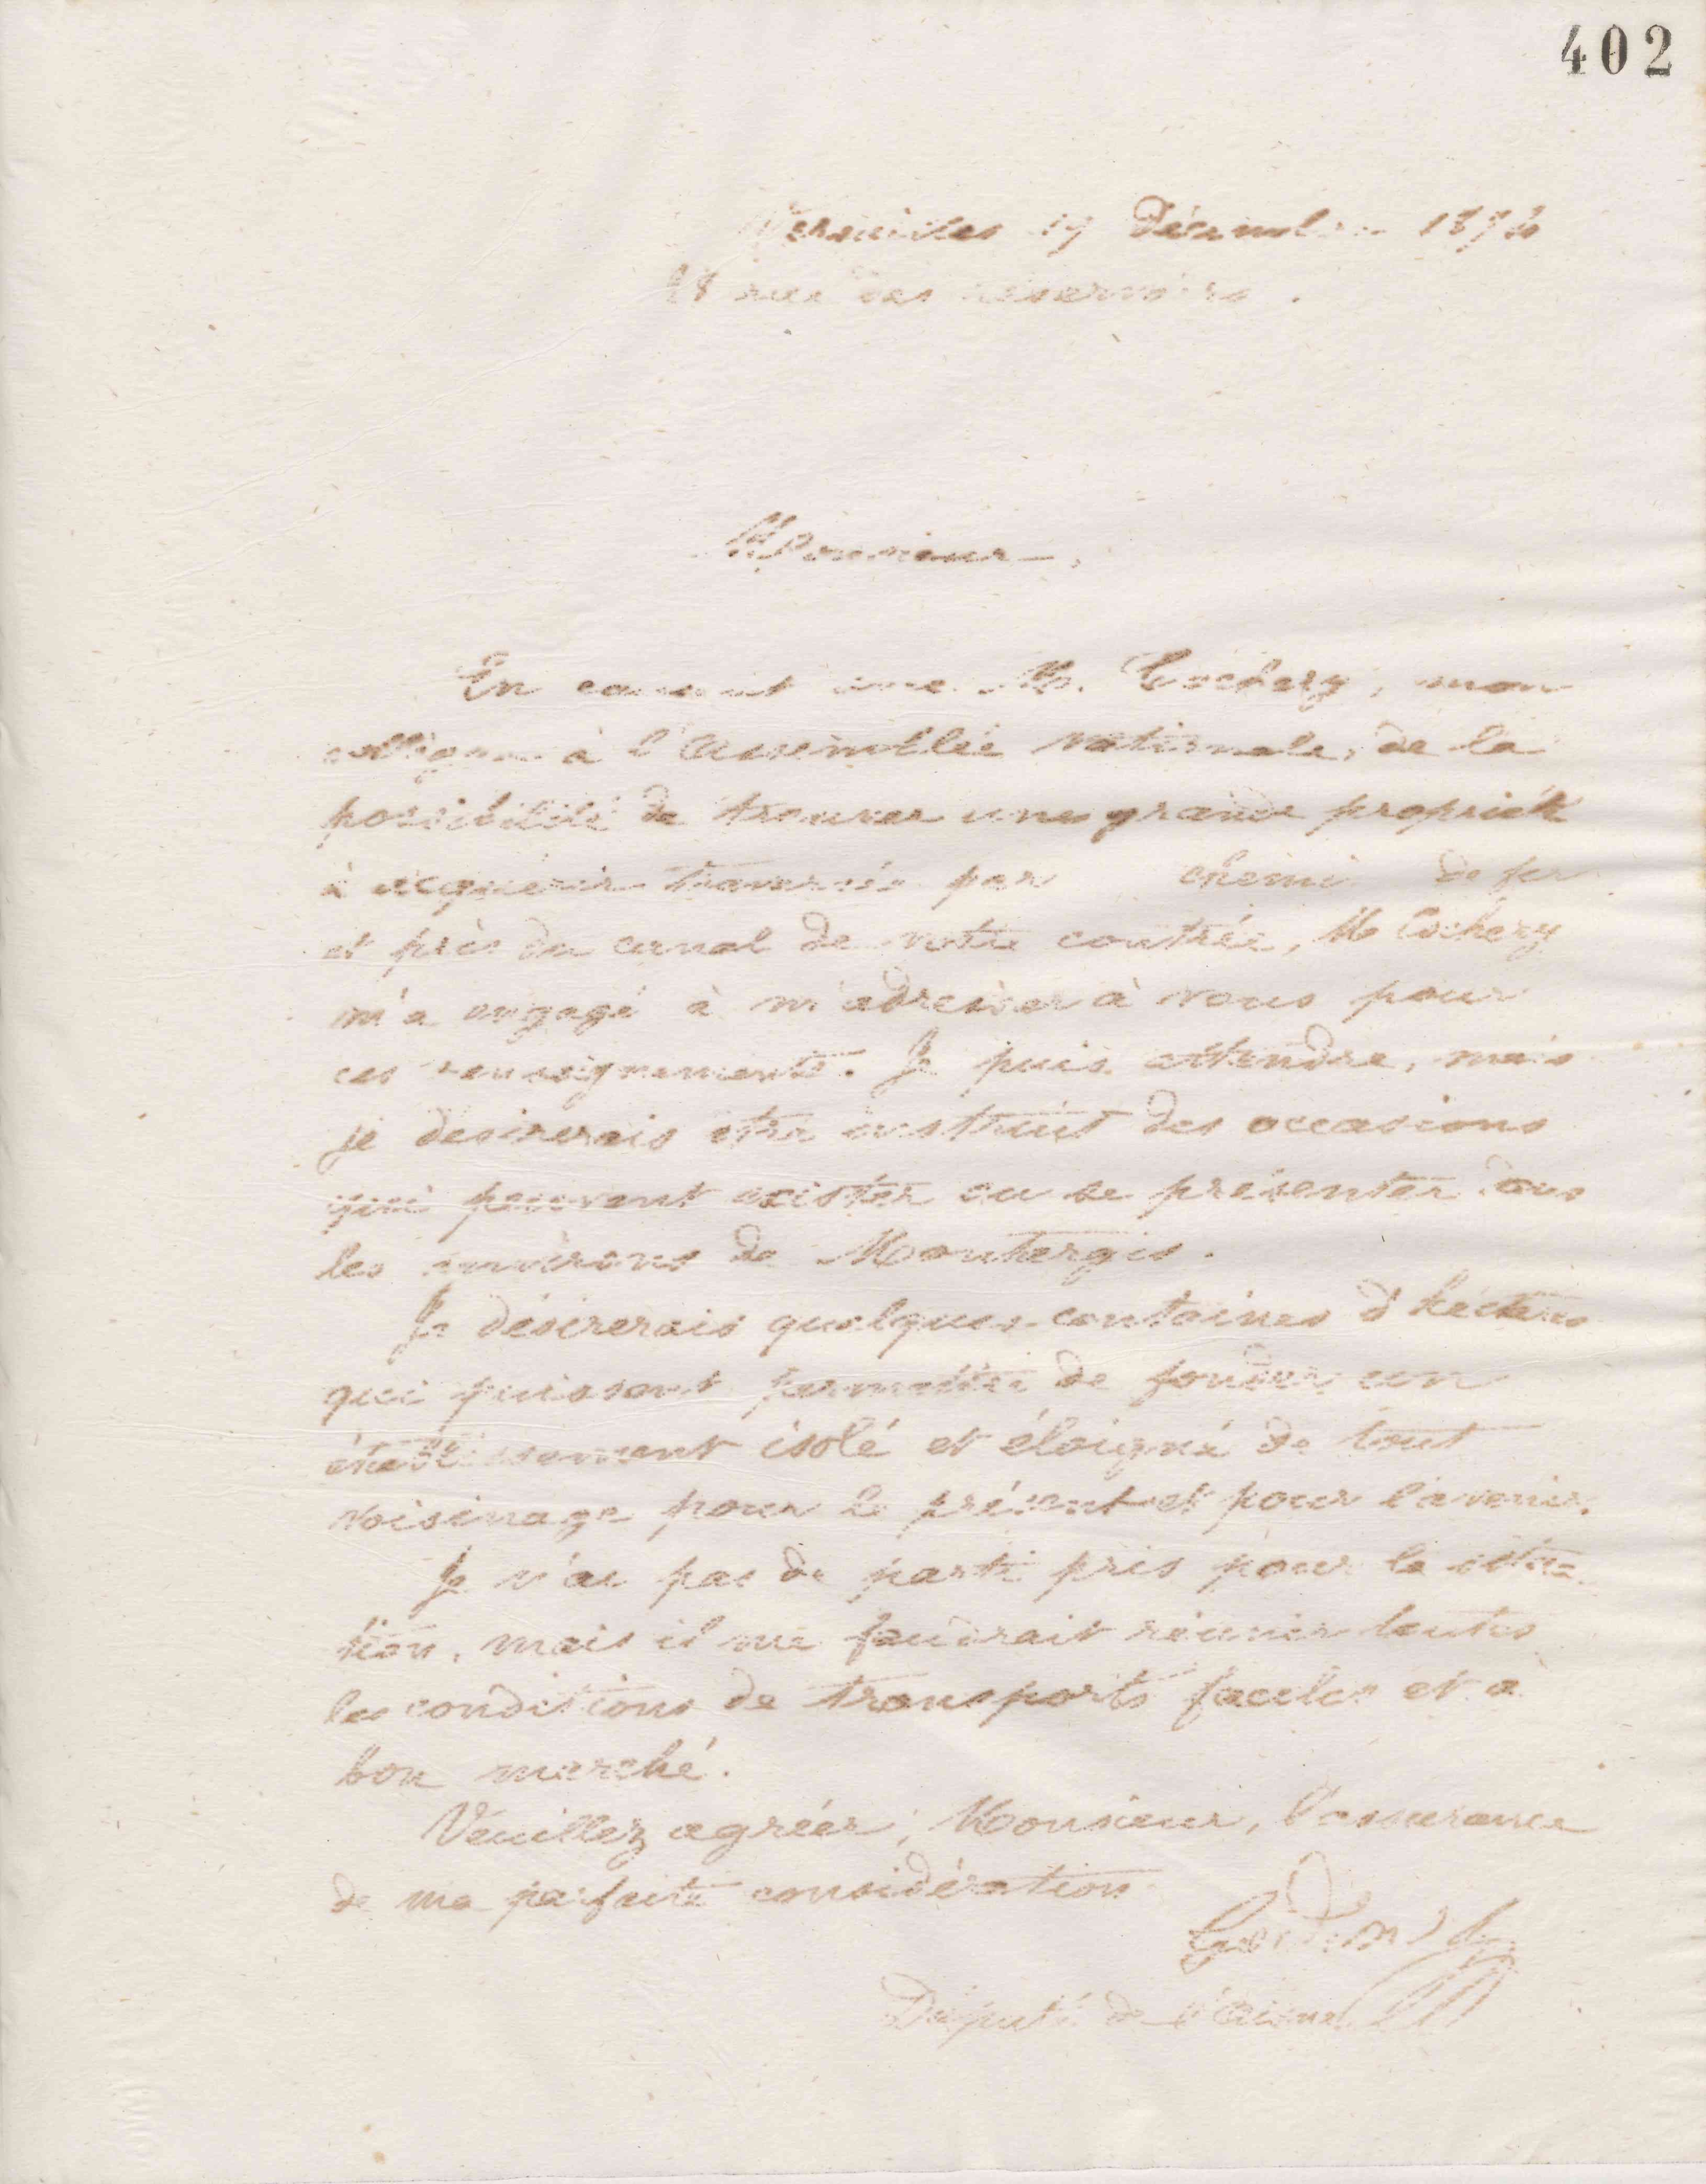 402
Versailles 19 Décembre 187
28 rue des réservoirs.
Monsieur,
En causant avec M. Cochery, mon
collègue à l'assemblée nationale, de la
possibilité de trouver une grande propriété
à acquérir traversée par chemin de fer
et près du canal de votre contrée, M Cochery
m'a engagé à m'adresser à vous pour
ces renseignements. Je puis attendre, mais
je desirerais être instruit des occasions
qui peuvent exister ou se présenter dans
les environs de Montargis.
Je désirerais quelques centaines d'hectares
qui puissent permettre de fonder un
établissement isolé et éloigné de tout
voisinage pour le présent et pour l'avenir.
Je n'ai pas de parti pris pour la situa-
tion, mais il me faudrait réunir toutes
les conditions de transports faciles et à
bon marché.
Veuillez agréer, Monsieur, l'assurance
de ma parfaite considération
Godin
Député de l'Aisne